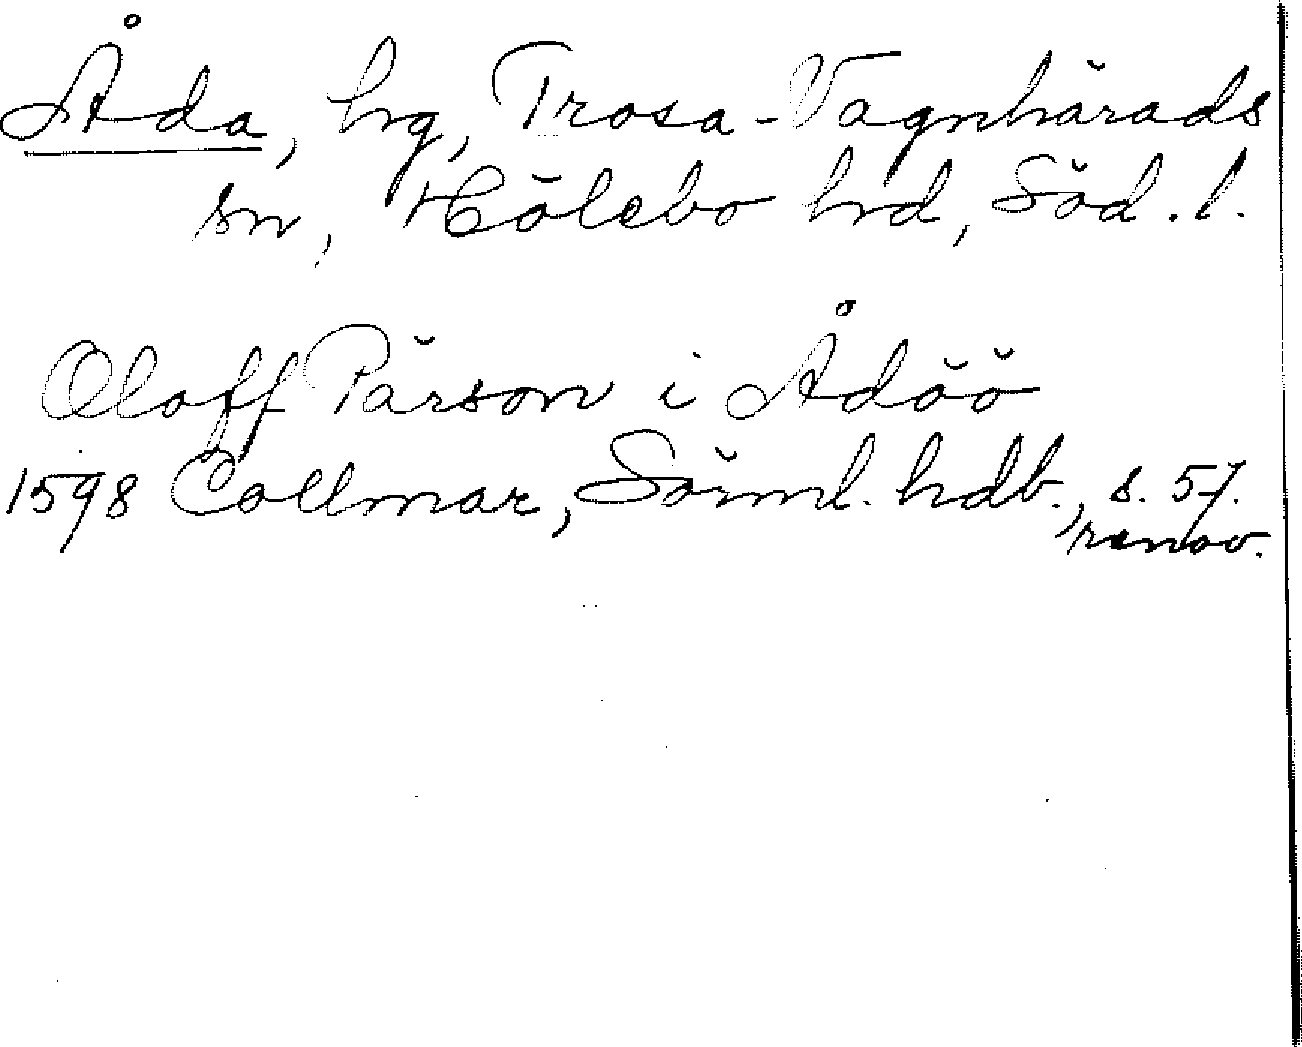 Åda, hg, Trosa-Vagnhärads
sn, Hölebo hrd, Söd. l.
Oloff Pärson i Ådöö
1598 Collmar, Sörml. hdb., s. 57.
renov.